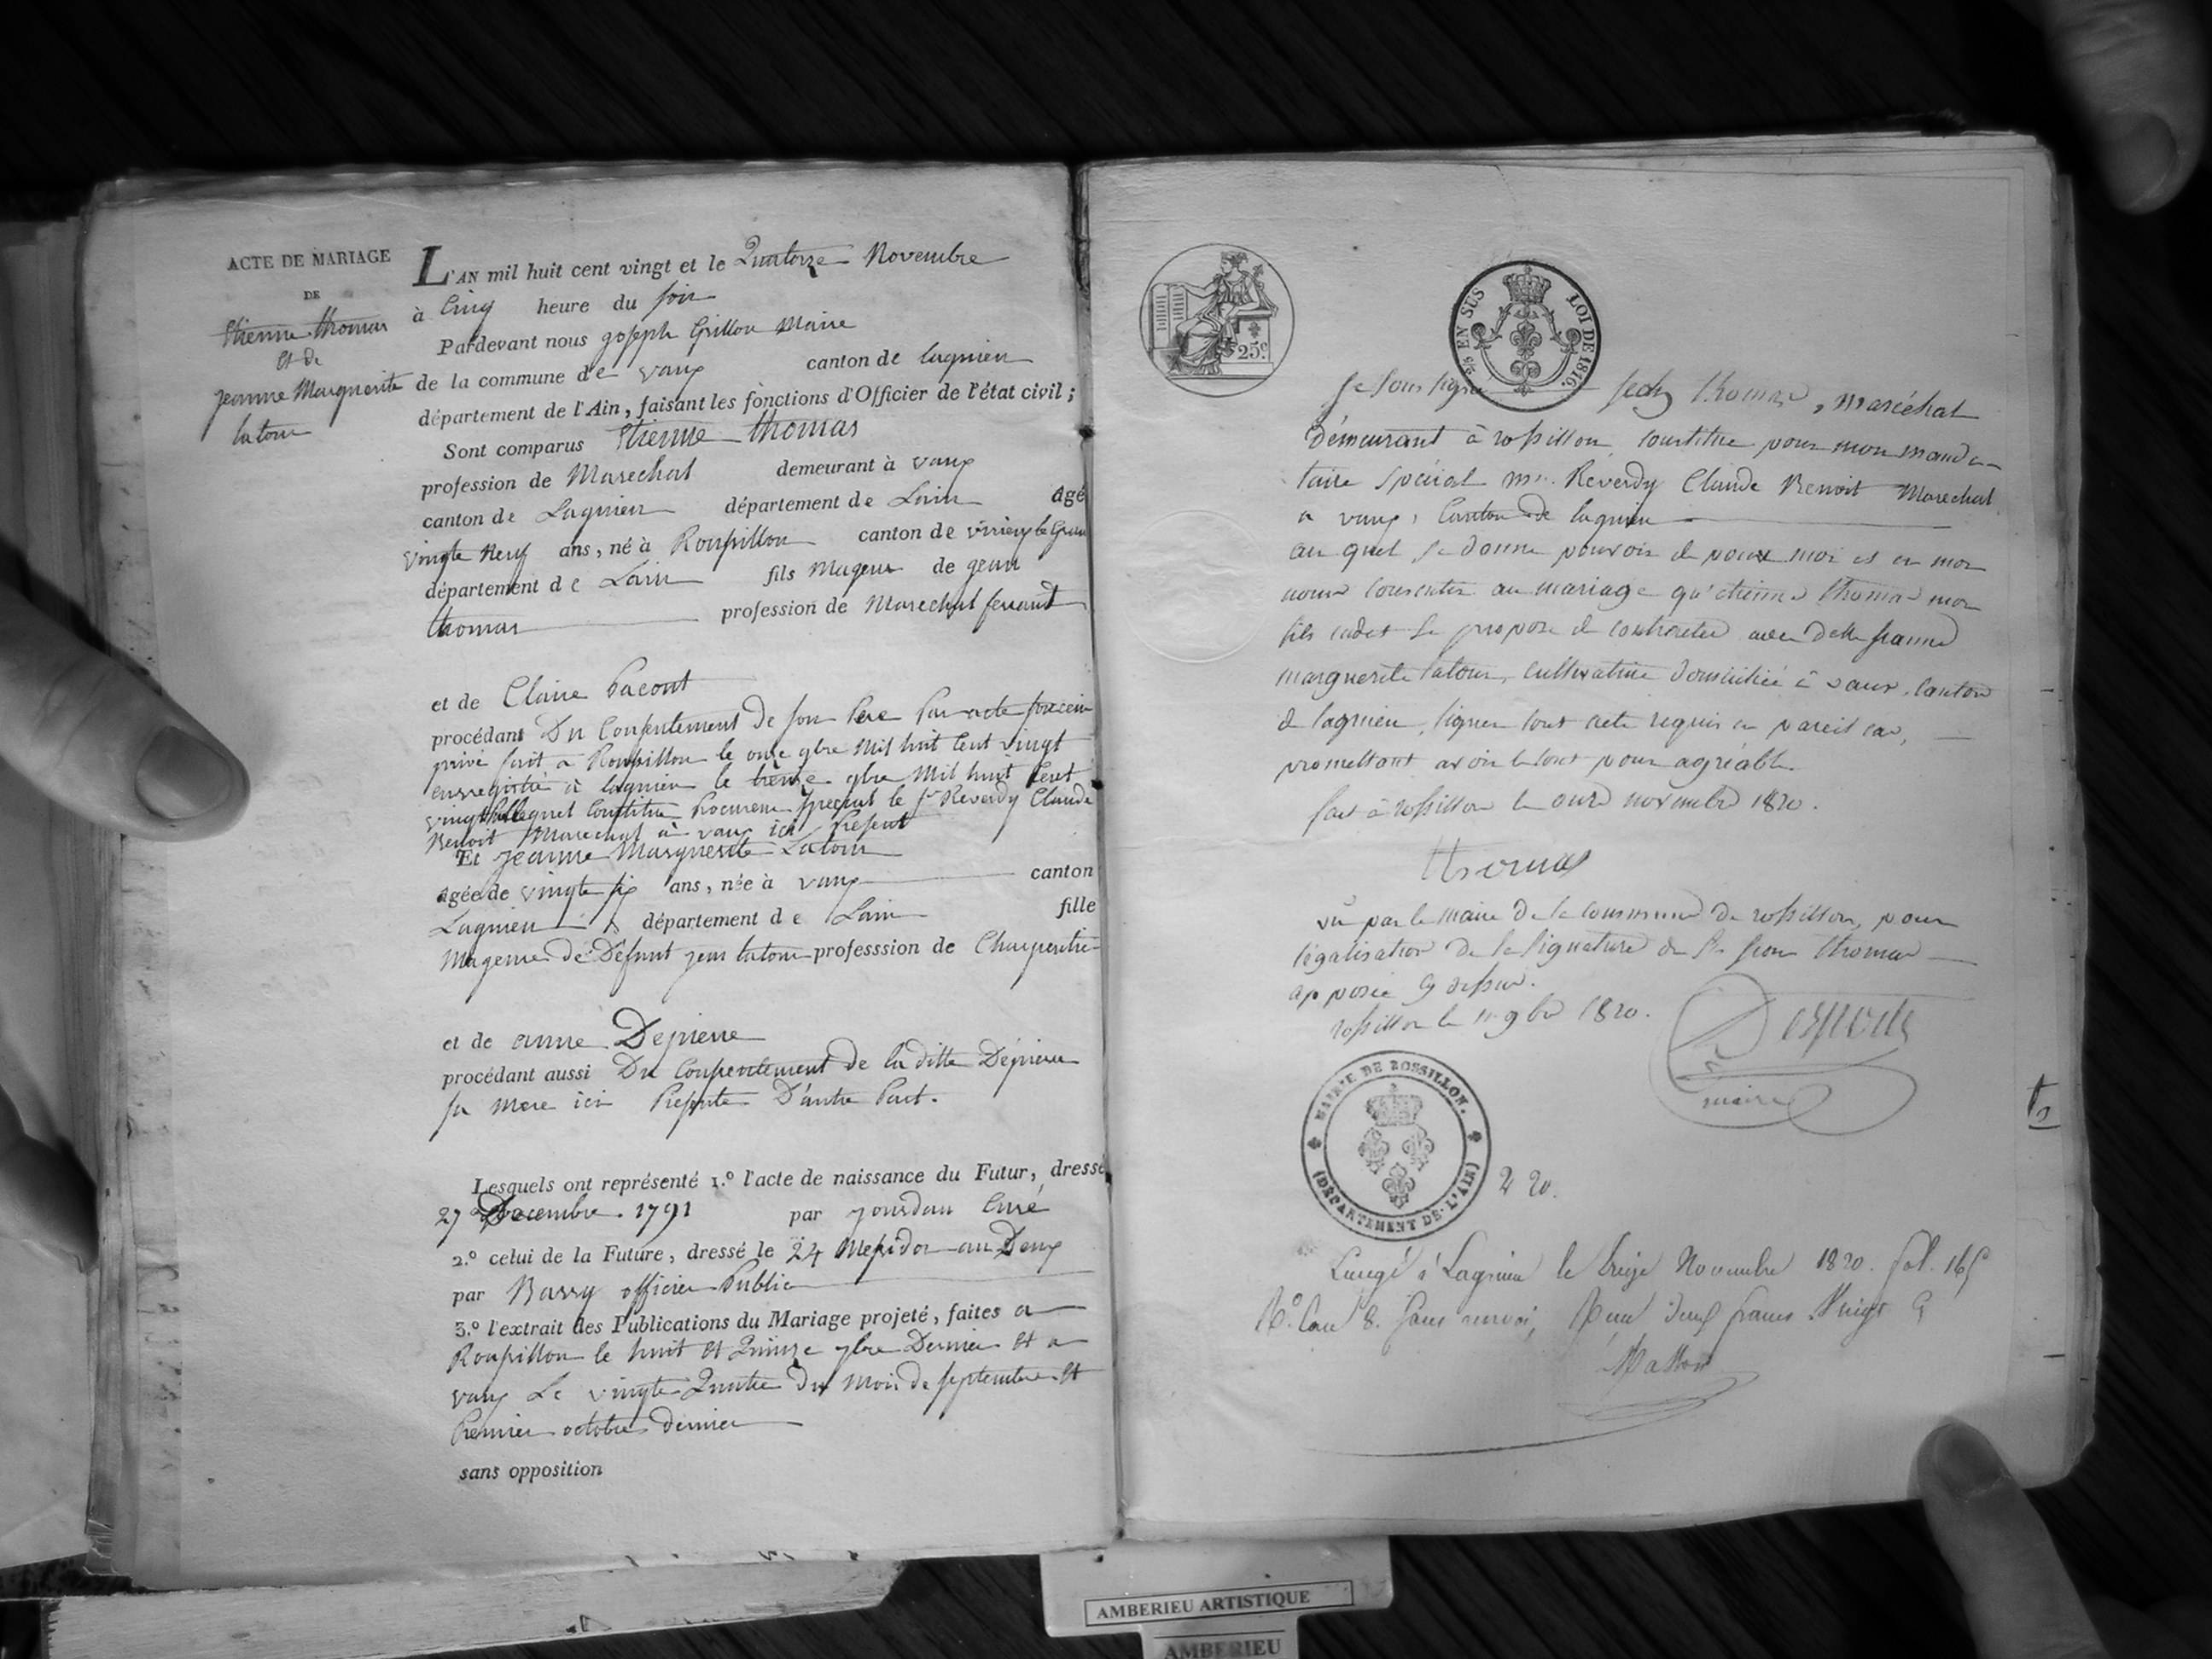 ACTE DE MARIAGE
DE
Etienne thomas
et de
jeanne Marguerite
latour
L'AN mil huit cent vingt et le Quatorze Novembre
à Cinq heure du soir
Pardevant nous joseph Grillon Maire
de la commune de vaux canton de lagnieu
département de l'Ain, faisant les fonctions d'Officier de l'état civil ;
Sont comparus Etienne thomas
profession de Marechal demeurant à vaux
canton de Lagnieu département de Lain âgé
vingte Neuf ans, né à Roussillon canton de virieux le Grand
département de Lain fils Mageur de jean
thomas profession de Marechal ferrant
et de Claire Pacout
procédant Du Consentement de son Pere Par acte sousein
privé fait a Roussillon le onze 9bre Mil huit Cent vingt
enregistré à lagnieu le treize 9bre Mil huit Cent
vingt lequel Constitue Procureur special le sr Reverdy Claude
Benoit Marechal à vaux ici Present
Et jeanne Marguerite Latour
agée de vingte six ans, née à vaux canton
Lagnieu département de Lain fille
Mageure de Défunt jean latour professsion de Charpentier
et de anne Depierre
procédant aussi Du Consentement de la ditte Dépierre
sa Mere ici Présente D'autre Part.
Lesquels ont représenté 1.º l'acte de naissance du Futur, dressé
27 Decembre 1791 par jourdan Curé
2.º celui de la Future, dressé le 24 Messidor an Deux
par Barry officier Public
3.º l'extrait des Publications du Mariage projeté, faites a
Roussillon le huit et Quinze 9bre Dernier et a
vaux Le vingte Quatre du Mois de septembre et
Premier octobre dernier
sans opposition
25c.
EN SUS LOI DE 1816.
Je sous signé jean thomas, maréchal
démeurant à rossillon constitue pour mon manda-
taire spécial mr. Reverdy Claude Benoit Marechal
a vaux, Canton de lagnieu
au quel je donne pouvoir de pour moi et en mon
nom consentir au mariage qu'etienne thomas mon
fils cadet se propose de contracter avec delle jeanne
marguerite latour, cultivatrice domiciliée à vaux, canton
de lagnieu, signer tout acte requis en pareil cas,
promettant avoir le tout pour agréable.
fait à rossillon le onze novembre 1820.
thomas
vu par le maire de la commune de rossillon, pour
légalisation de la signature du Sr. jean thomas
apposée cy dessus.
rossillon le 11 9bre 1820.
maire
MAIRIE DE ROSSILLON.
(DÉPARTEMENT DE L'AIN)
2 20.
Enregé à Lagnieu le treize Novembre 1820. fol. 165
Rº. Case 8. sans renvoi, Reçu deux francs Vingt c
AMBERIEU ARTISTIQUE
AMBERIEU